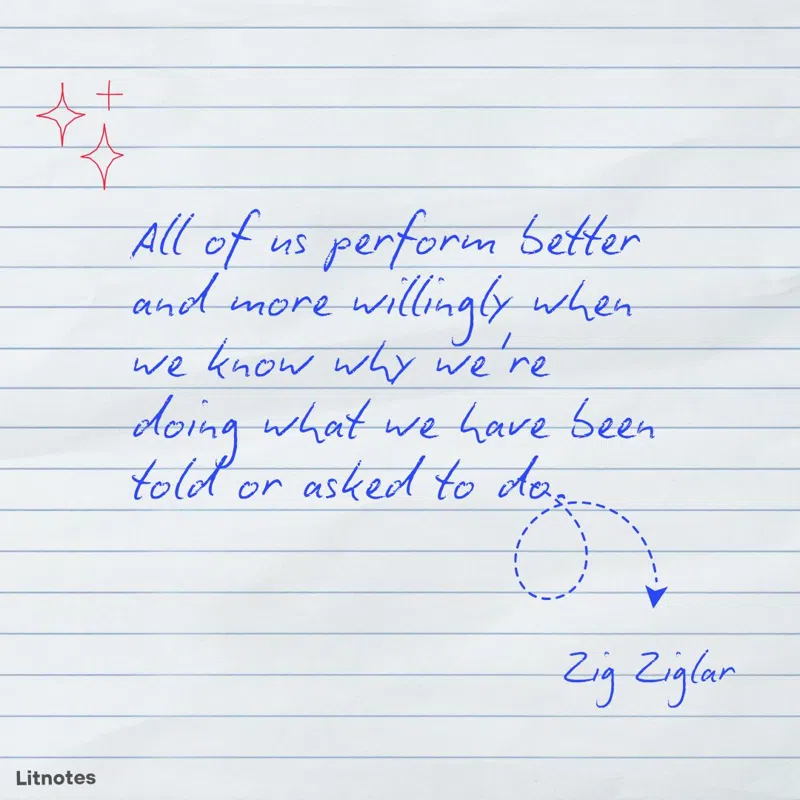 All of us perform better
and more willingly when
we know why we're
doing what we have been
told or asked to do.
Zig Ziglar
Litnotes